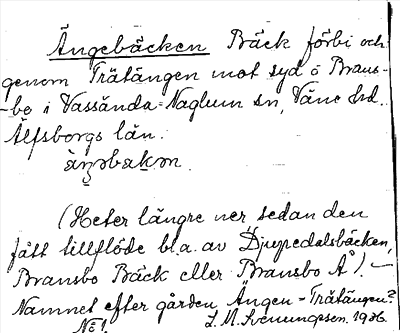 Ängebäcken Bäck förbi och
genom Trätängen mot syd ö Brans-
-bo i Vassända-Naglum sn, Väne hd.
Älfsborgs län.
(Heter längre ner sedan den
fått tillflöde bl.a. av Djupedalsbäcken,
Bransbo Bäck eller Bransbo Å). —
Namnet efter gården Ängen - Trätängen?
Nej! 1926.